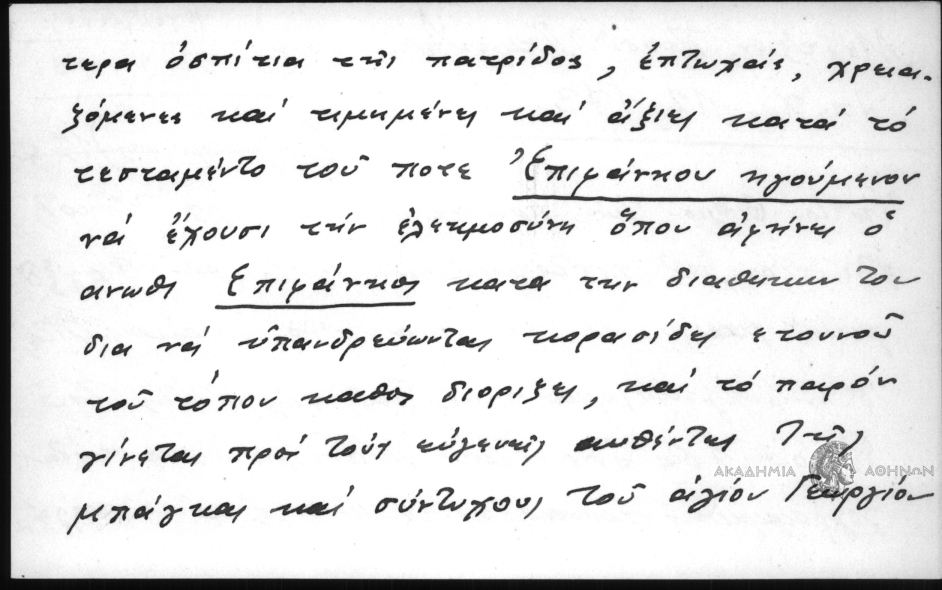 τερα ὁσπίτια τῆς πατρίδος, ἐπτωχάις, χρεια-
ζόμενες καί τιμημένες καί ἄξιες κατά τό
τεσταμέντο τοῦ ποτε Ἐπιφάνκου ηγούμενου
νά ἔχουσι τήν ἐλεημοσύνη ὅπου ἀφίνει ὁ
ανωθε Επιφάνκος κατα την διαθηκην του
δια νά ὑπανδρεύωνται κορασίδες ετουνοῦ
τοῦ τόπου καθος διοριζει, καί τό παρόν
γίνεται πρός τούς εὐγενεῖς αυθέντες Τῆς
μπάγκας καί σύντυχους τοῦ ἁγίου Γεωργίου
ΑΚΑΔΗΜΙΑ ΑΘΗΝΩΝ